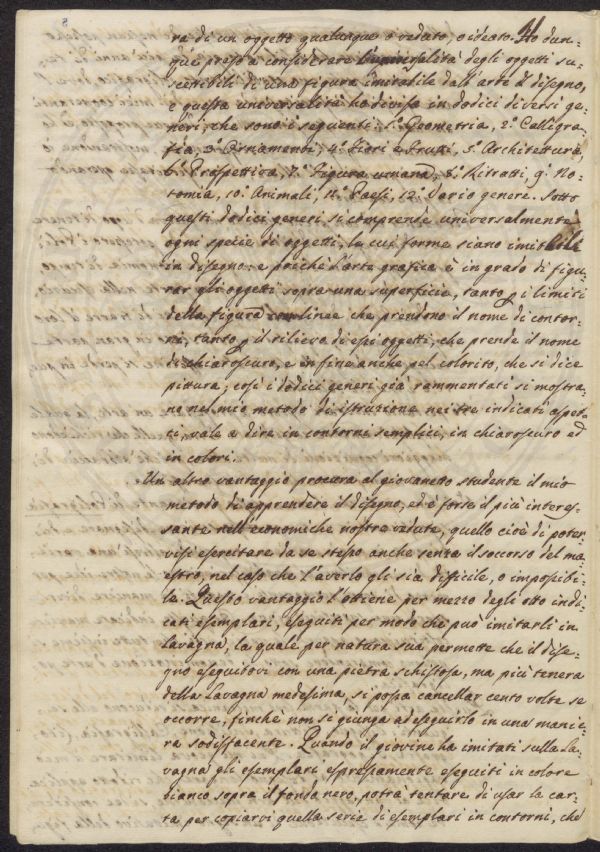 ra di un oggetto qualunque o veduto o ideato. Ho dun-
que presa a considerare l'universalità degli oggetti su-
scettibili di una figura imitabile dall'arte del disegno,
e questa universalità ho divisa in dodici diversi ge-
neri, che sono i seguenti: 1.° Geometria, 2.° Calligra-
fia, 3.° Ornamenti, 4.° Fiori e Frutti, 5.° Architettura,
6.° Prospettiva, 7.° Figura umana, 8.° Ritratti, 9.° No-
tomia, 10.° Animali, 11.° Paesi, 12.° Vario genere. Sotto
questi dodici generi si comprende universalmente
ogni specie di oggetti, la cui forme siano imitabili
in disegno: e poiché l'arte grafica è in grado di figu-
rar gli oggetti sopra una superficie, tanto p i limiti
della figura con linee che prendono il nome di contor-
ni, tanto p il rilievo di essi oggetti, che prende il nome
di chiaroscuro, e in fine anche pel colorito, che si dice
pittura; così i dodici generi già rammentati si mostra-
no nel mio metodo di istruzione nei tre indicati aspet-
ti, vale a dire in contorni semplici, in chiaroscuro ed
in colori.
Un altro vantaggio procura al giovanetto studente il mio
metodo di apprendere il disegno, ed è forse il più interes-
sante nell'economiche nostre vedute, quello cioè di poter-
visi esercitare da se stesso anche senza il soccorso del ma-
estro, nel caso che l'averlo gli sia difficile, o impossibi-
le. Questo vantaggio l'ottiene per mezzo degli otto indi-
cati esemplari, eseguiti per modo che può imitarli in
lavagna, la quale per natura sua permette che il dise-
gno eseguitovi con una pietra schistosa, ma più tenera
della lavagna medesima, si possa cancellar cento volte se
occorre, finchè non si giunga ad eseguirlo in una manie-
ra sodisfacente. Quando il giovine ha imitati sulla la-
vagna gli esemplari espressamente eseguiti in colore
bianco sopra il fondo nero, potrà tentare di usar la car-
ta per copiarvi quella serie di esemplari in contorni, che